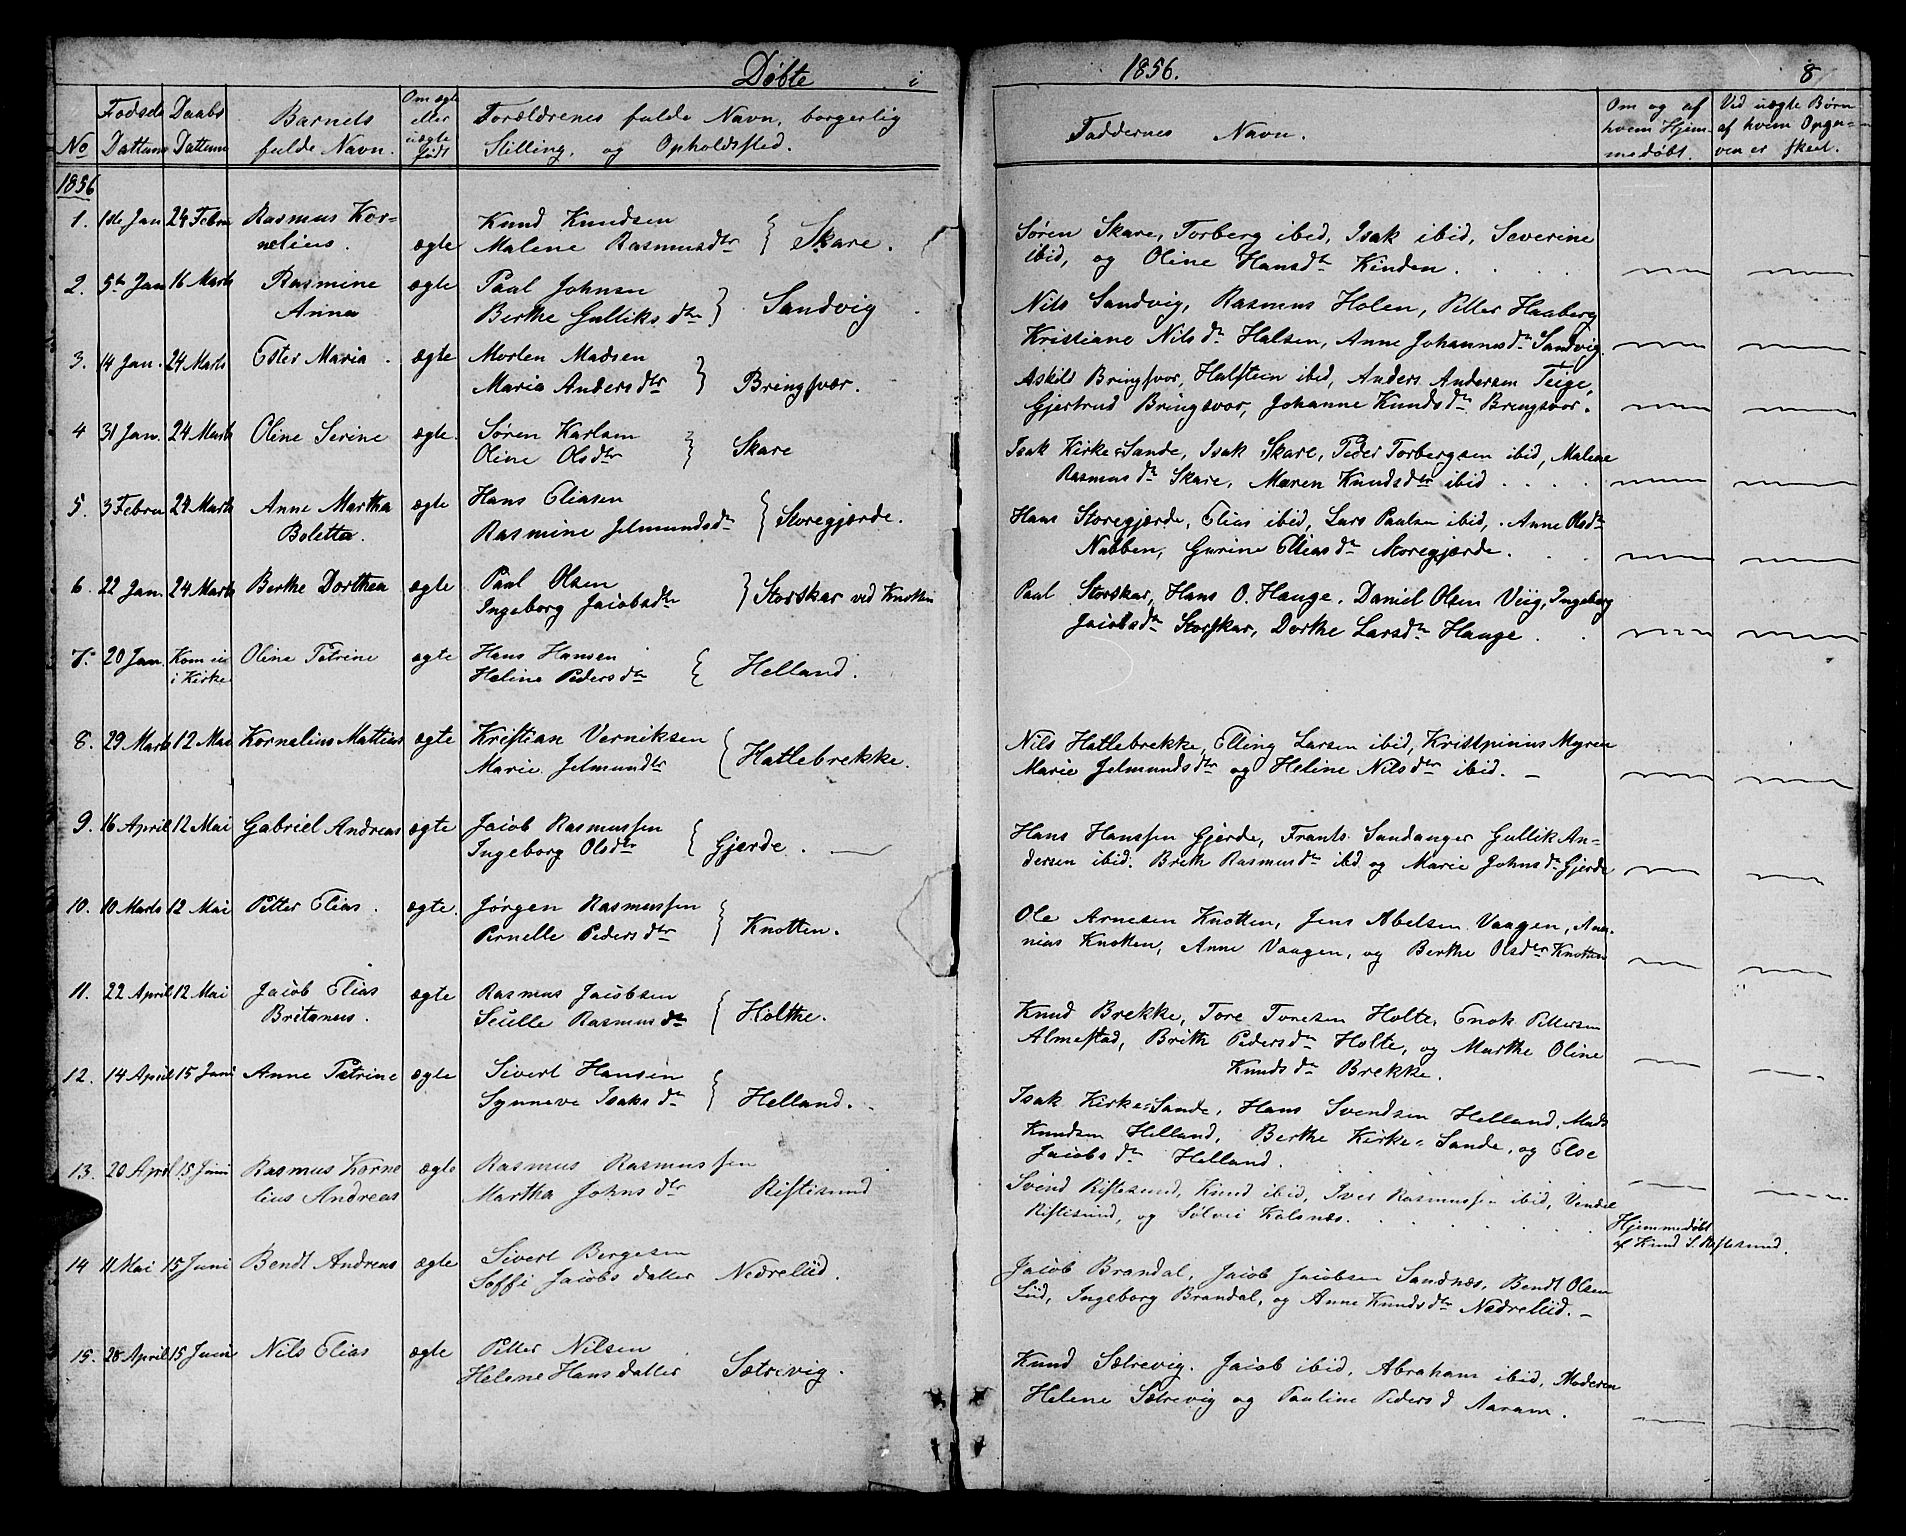 Døbte i 1856. 8
No
Fødsels Dattum
Daabs Dattum
Barnets fulde Navn.
Om ægte eller uægte født
Forældrenes fulde Navn, borgerlig Stilling, og Opholdssted.
Faddernes Navn.
Om og af hvem Hjemmedøbt.
Ved uægte Børn af hvem Opgaven er skeet.
1856
1. 1ste Jan 24 Febru Rasmus Kor= Knud Knudsen
nelius. ægte Malene Rasmusdtr } Skare.
Søren Skare, Torberg ibid, Isak ibid, Severine
ibid, og Oline Hansdtr Kinden.
2. 5te Jan 16 Marts Rasmine ægte Paal Johnsen
Anna Berthe Gulliksdtr } Sandvig
Nils Sandvig, Rasmus Holen, Petter Haaberg
Kristiane Nilsdtr Halsen, Anne Johannesdtr Sandvig.
3. 14 Jan. 24 Marts Ester Maria. ægte Morten Madsen
Maria Andersdtr } Bringsvær.
Askild Bringsvor, Halstein ibid, Anders Andersen Teige,
Gjertrud Bringsvor, Johanne Knudsdtr Bringsvor.
4 31 Jan. 24 Marts Oline Serine ægte. Søren Karlsen
Oline Olsdtr } Skare
Isak Kirke=Sande, Isak Skare, Peder Torbergsen ibid, Malene
Rasmusdtr Skare, Maren Knudsdtr ibid
5. 3 Febru 24 Marts Anne Martha ægte Hans Eliasen
Boletta. Rasmine Jelmundsdtr } Storegjærde.
Hans Storegjærde, Elias ibid, Lars Paulsen ibid, Anne Olsdtr
Nabben, Gurine Eliasdtr Storegjærde.
6. 22 Jan. 24 Marts Berthe Dorthea ægte Paul Olsen
Ingeborg Jacobsdtr } Storskar ved Knotten
Paul Storskar, Hans O. Hauge, Daniel Olsen Viig, Ingeborg
Jacobsdtr Storskar, Dorthe Larsdtr Hauge.
7. 20 Jan. Kom ei Oline Petrine ægte Hans Hansen
i Kirke Heline Pedersdtr { Helland.
8. 29 Marts 12 Mai Kornelius Mattias ægte Kristian Verniksen
Marie Jelmundtr { Hatlebrekke.
Nils Hatlebrekke, Elling Larsen ibid, Kristpinius Myren
Marie Jelmundsdtr og Heline Nilsdtr ibid. –
9. 16 April 12 Mai Gabriel Andreas ægte Jacob Rasmussen
Ingeborg Olsdtr { Gjerde.
Hans Hanssen Gjerde, Frants Sandanger Gullik An=
dersen ibid. Brith Rasmusdtr ibd og Marie Johnsdtr Gjerde
10. 10 Marts 12 Mai Petter Elias. ægte. Jørgen Rasmussen
Pernelle Pedersdtr { Knotten.
Ole Arnesen Knotten, Jens Abelsen Vaagen, Ana=
nias Knotten, Anne Vaagen, og Berthe Olsdtr Knotten
11. 22 April 12 Mai Jacob Elias ægte Rasmus Jacobsen
Britanus. Seille Rasmusdtr { Holthe.
Knud Brekke, Tore Toresen Holte, Enok Pettersen
Almestad, Brith Pedersdtr Holte, og Marthe Oline
Knudsdtr Brekke.
12. 14 April 15 Juni Anne Petrine ægte Sivert Hansen
Synneve Isaksdtr { Helland.
Isak Kirke=Sande, Hans Svendsen Helland, Mads
Knudsen Helland, Berthe Kirke=Sande, og Else
Jacobsdtr Helland.
13. 20 April 15 Juni Rasmus Korne ægte Rasmus Rasmussen
lius Andreas Martha Johnsdtr Riftesund
Svend Riftesund, Knud ibid, Iver Rasmussen ibid, Vendel
Riftesund, og Sølvei Kalsnæs.
Hjemmedøbt
af Knud S. Riftesund.
14 11 Mai 15 Juni Bendt Andreas ægte Sivert Bergesen
Soffi Jacobs datter Nedreliid.
Jacob Brandal, Jacob Jacobsen Sandnæs, Bendt Olsen
Liid, Ingeborg Brandal, og Anne Knudsdtr Nedreliid. –
15. 28 April 15 Juni Nils Elias ægte Petter Nilsen
Helene Hansdatter Sætrevig.
Knud Sætrevig. Jacob ibid, Abraham ibid, Moderen
Helene Sætrevig og Pauline Pedersd Aaram.